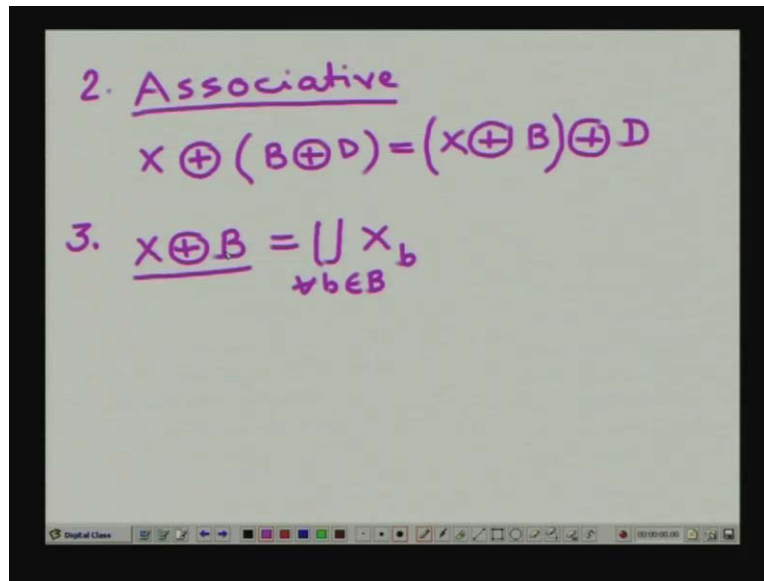 2. Associative
X ⊕ (B ⊕ D) = (X ⊕ B) ⊕ D
3. X ⊕ B = ⋃ X_b
∀ b ∈ B
Digital Class
00:00:00.00